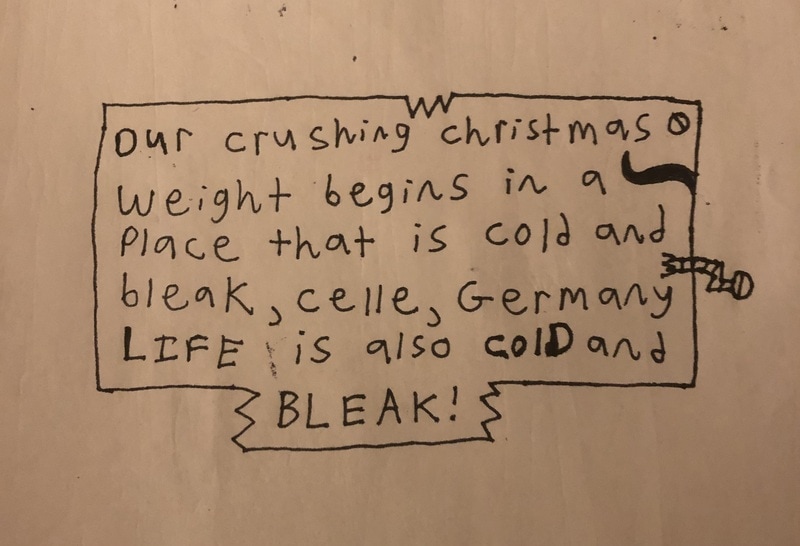 our crushing christmas
weight begins in a
place that is cold and
bleak, celle, Germany
LIFE is also COlD and
BLEAK!